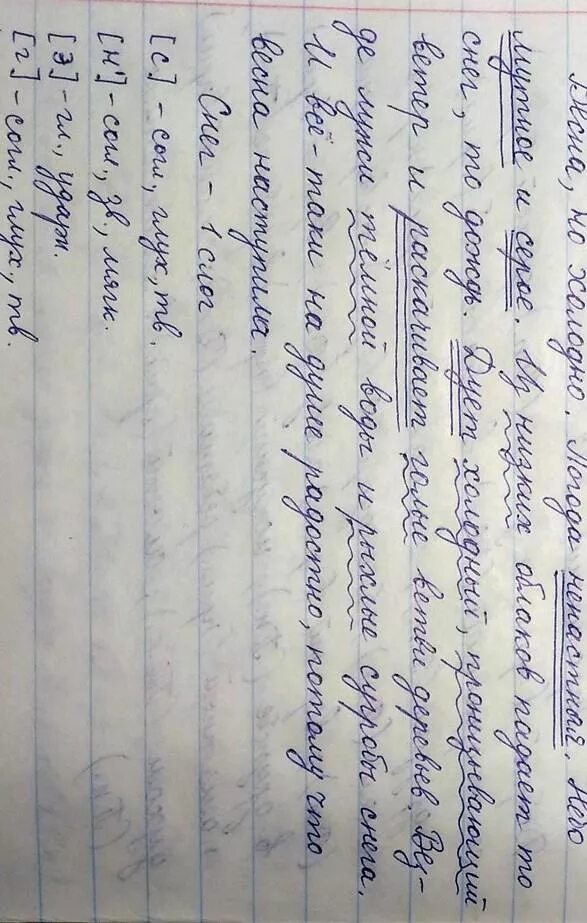 Весна, но холодно. Погода ненастная. Небо
мутное и серое. Из низких облаков падает то
снег, то дождь. Дует холодный, пронизывающий
ветер и раскачивает голые ветви деревьев. Вез-
де лужи тёмной воды и рыхлые сугробы снега.
И всё-таки на душе радостно, потому что
весна наступила.
Снег - 1 слог
[с] - согл., глух., тв.
[н'] - согл., зв., мягк.
[э] - гл., ударн.
[г] - согл., глух., тв.